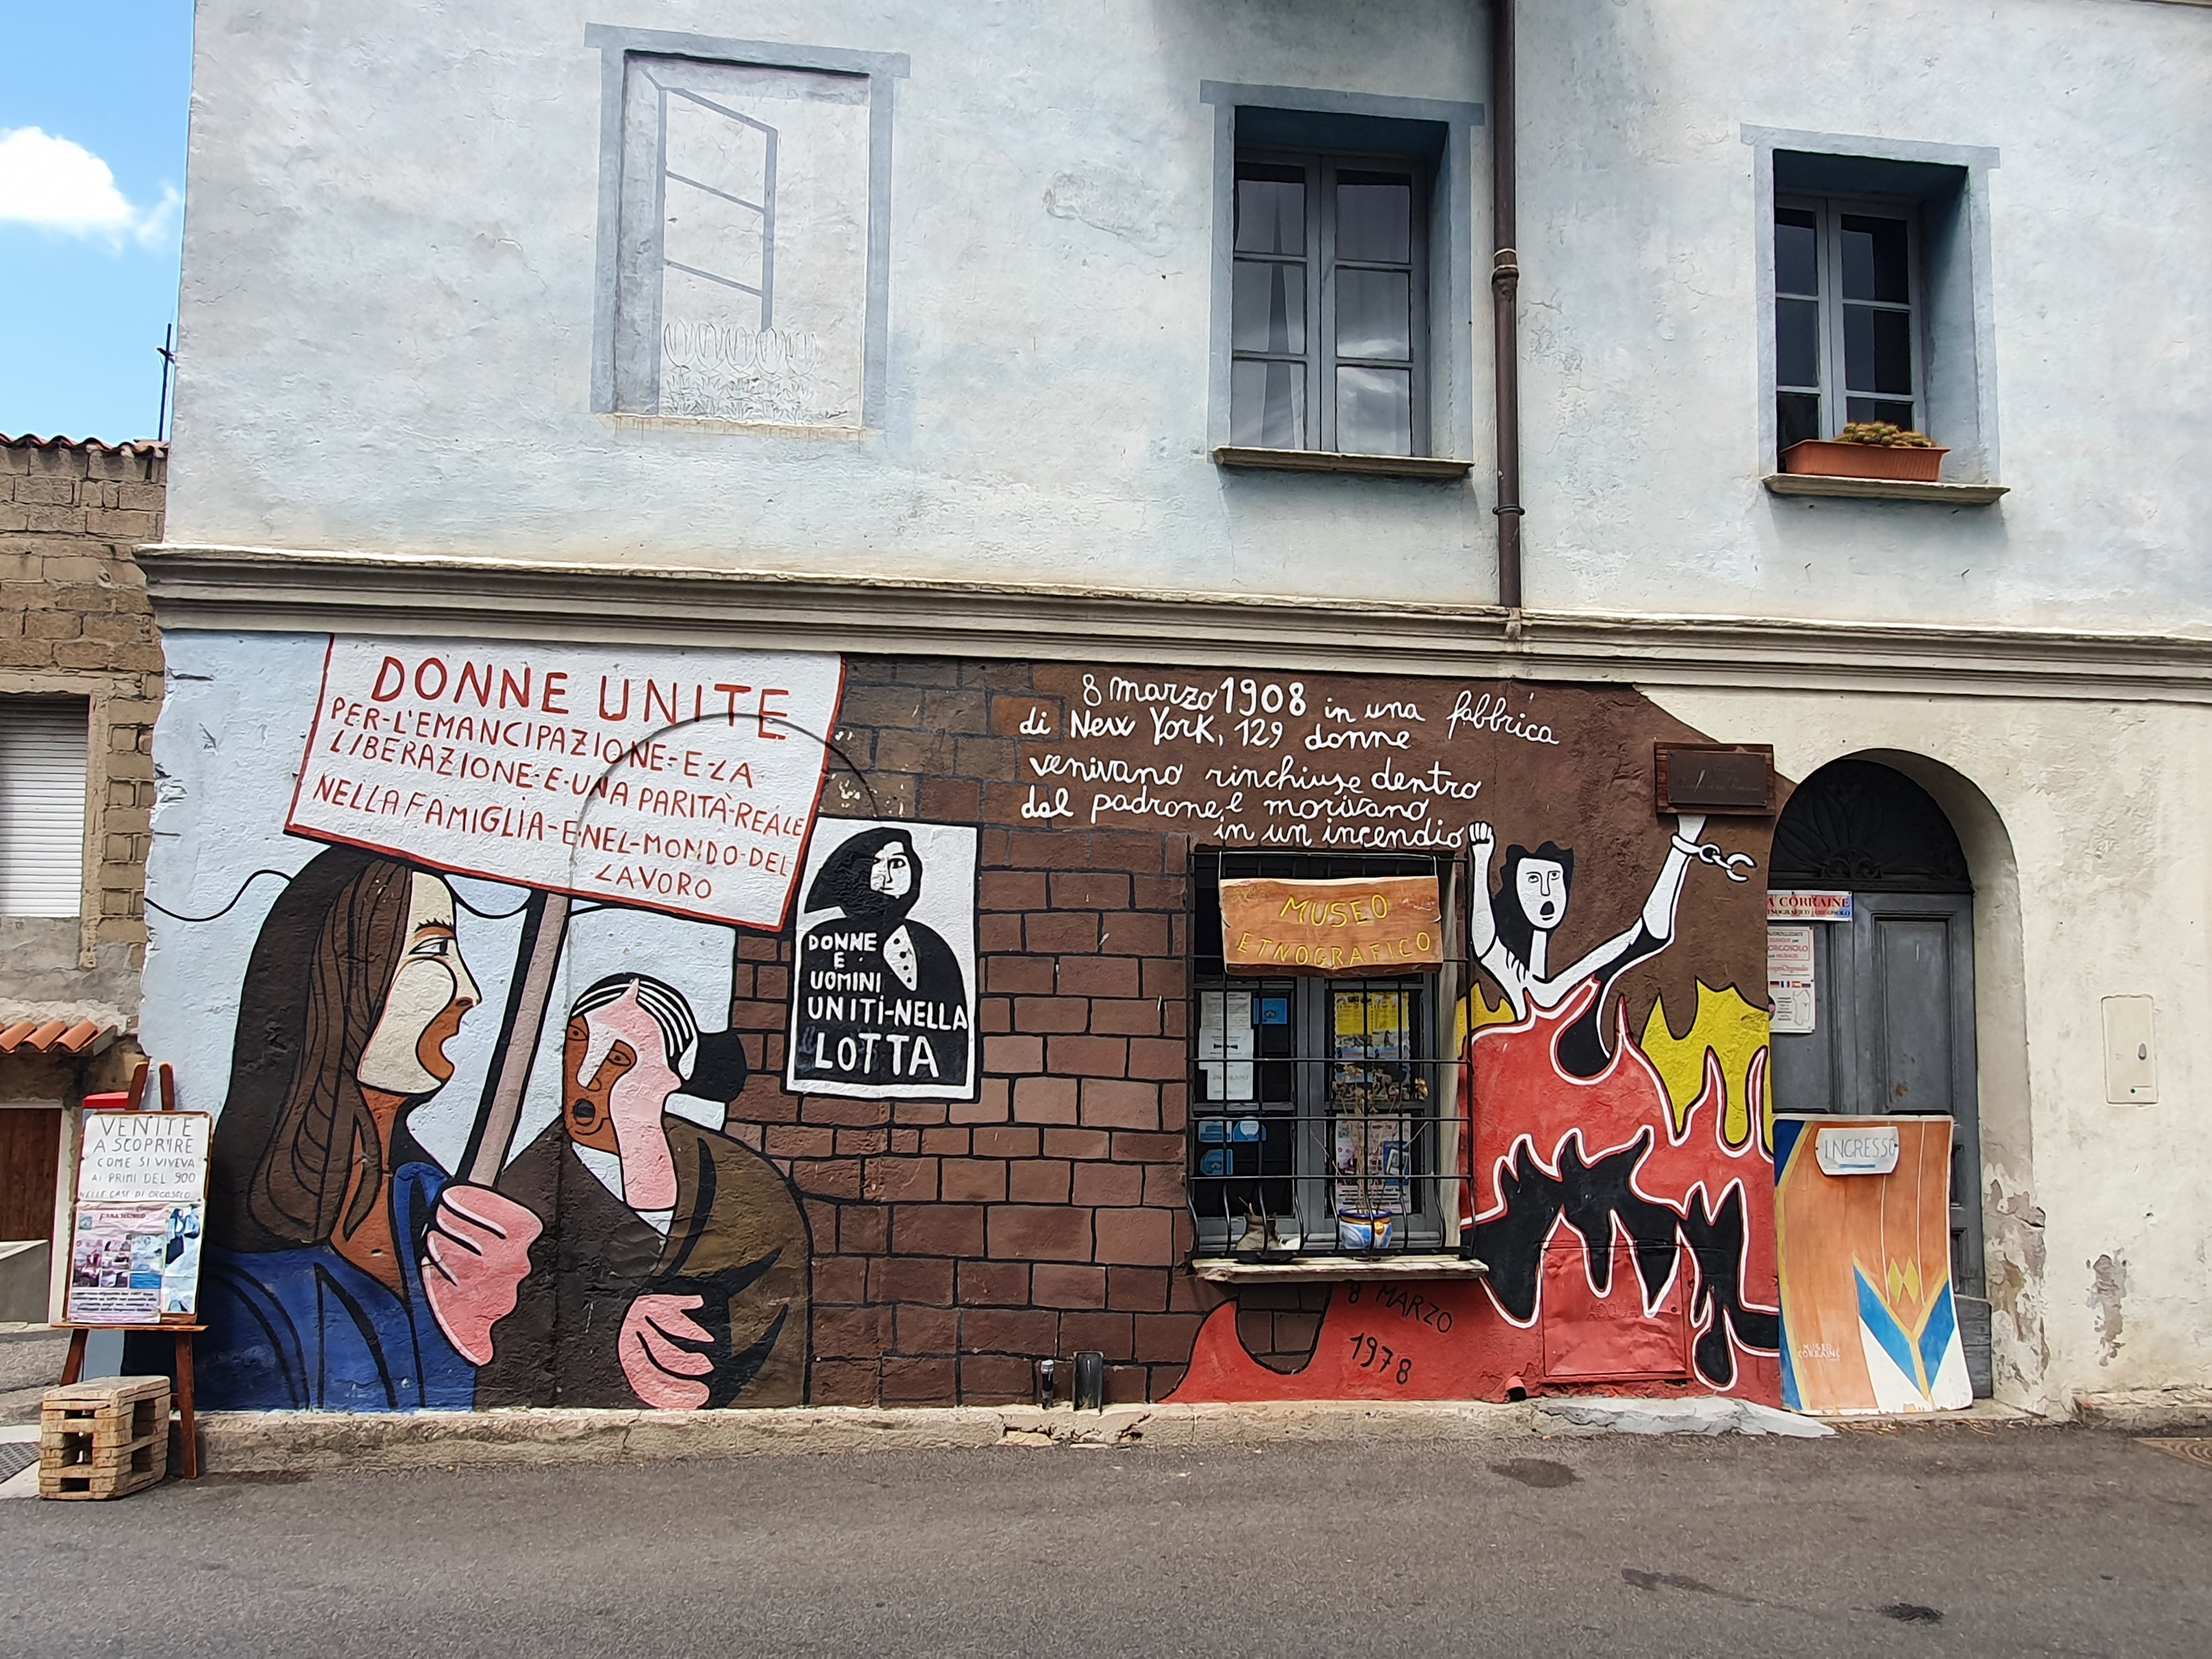 DONNE UNITE
PER-L'EMANCIPAZIONE-E-LA
LIBERAZIONE-E-UNA PARITÀ-REALE
NELLA FAMIGLIA-E-NEL-MONDO-DEL
LAVORO
DONNE
E
UOMINI
UNITI-NELLA
LOTTA
8 marzo 1908 in una fabbrica
di New York, 129 donne
venivano rinchiuse dentro
dal padrone e morivano
in un incendio
MUSEO
ETNOGRAFICO
8 MARZO
1978
ACQUA
CORRAINE
ORGOSOLO
INGRESSO
MUSEO
CORRAINE
VENITE
A SCOPRIRE
COME SI VIVEVA
AI PRIMI DEL 900
NELLE CASE DI ORGOSOLO
CASA MUSEO